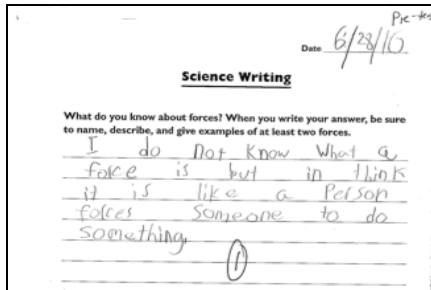 Pre-tes
Date 6/28/10
Science Writing
What do you know about forces? When you write your answer, be sure
to name, describe, and give examples of at least two forces.
I do not know what a
force is but in think
it is like a Person
forces someone to do
something,
1